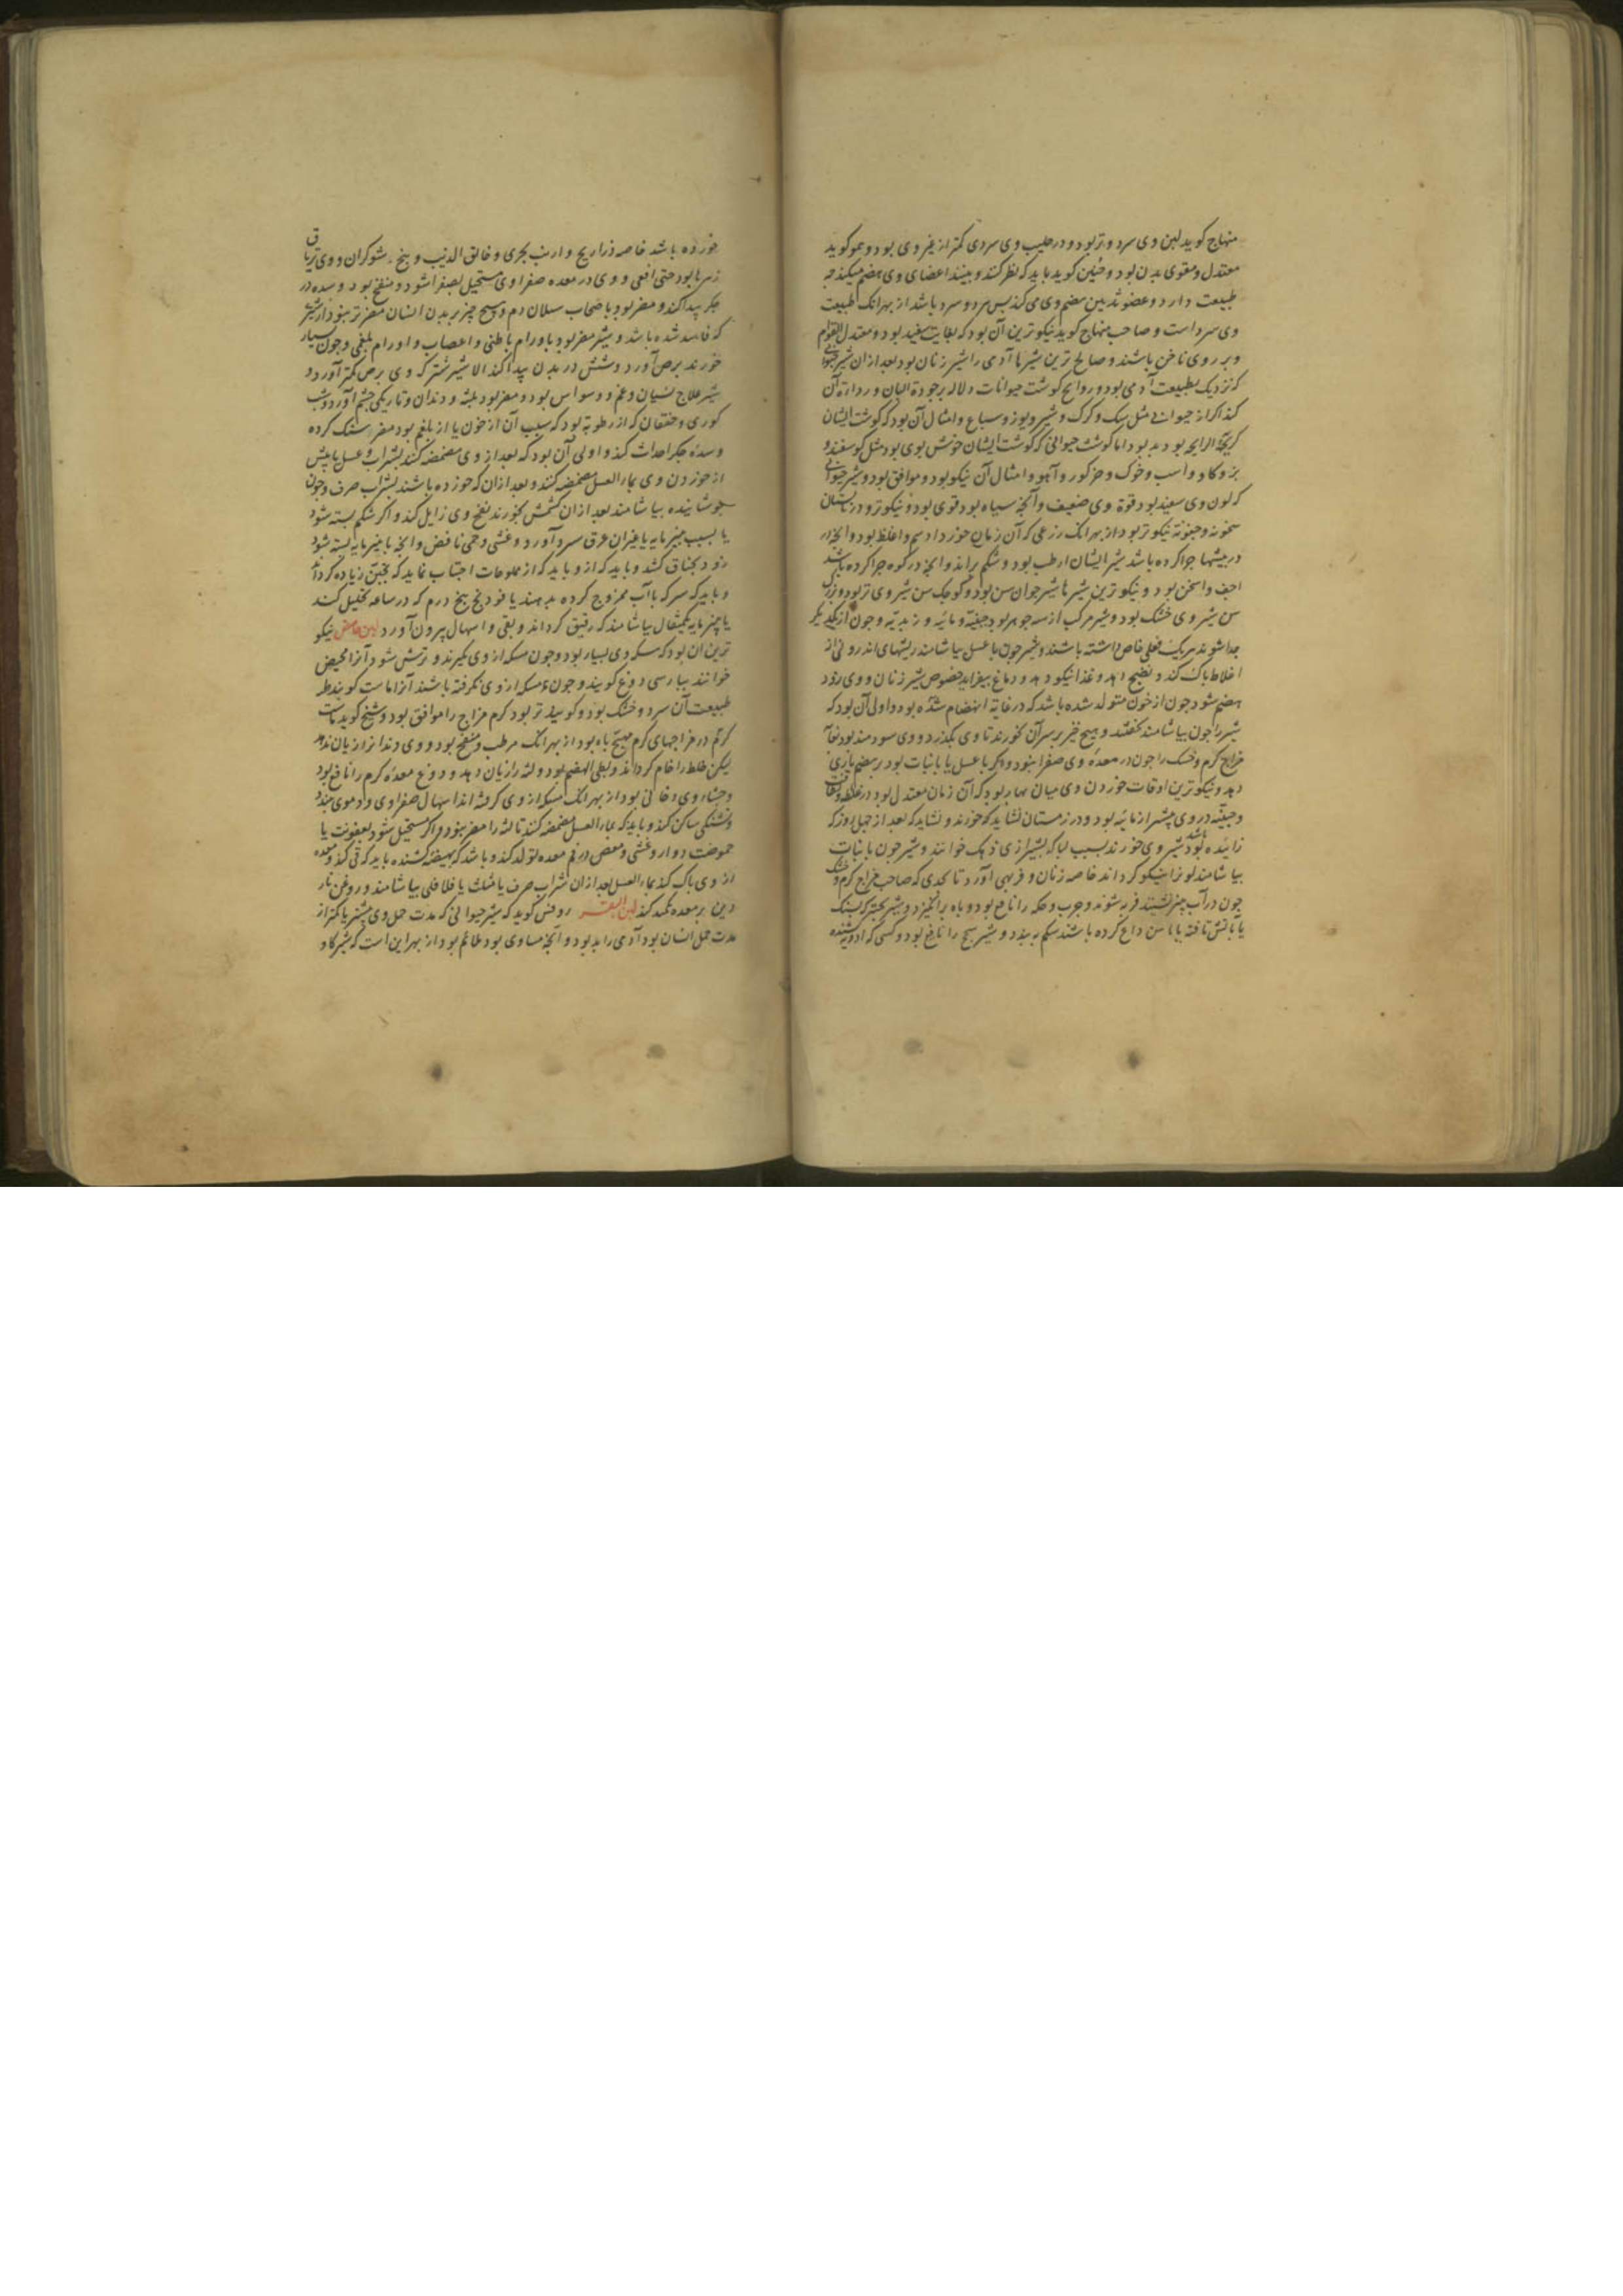 منهاج کوید لبن وی سرد و تر بود و در حلیب وی سردی کمتر از غیر وی بود و هموکوید
معتدل و مقوی بدن بود و حنین کوید باید که نظر کنند و ببینند اعضای وی هضم میکند چه
طبیعت دارد و عضو ثدیین هضم وی می کند پس سرد و سرد باشد از بهر انک طبیعت
وی سرد است و صاحب منهاج کوید نیکوترین آن بود که بغایت سفید بود و معتدل القوام
و بر روی ناخن باشند و صالح ترین شیرها آدمی را شیر زنان بود بعد ازان شیر حیوانی
که نزدیک بطبیعت آدمی بود و روایح کوشت حیوانات دلاله بر جودة البان و رداءة آن
کند اکر از حیوانی مثل سک و کرک و شیر و یوز و سباع و امثال آن بود که کوشت ایشان
کریه الرایحه بود بد بود اما کوشت حیوانی که کوشت ایشان خوش بوی بود مثل کوسفند و
بز و کاو و اسب و خوک و خرکور و آهو و امثال آن نیکو بود و موافق بود و شیر حیوانی
که لون وی سفید بود قوة وی ضعیف و آنچه سیاه بود قوی بود و نیکوتر و در تابستان
از بهر انک رزعی که آن زمان خورد ادسم و اغلظ بود و آنچه از
در بیشها چرا کرده باشد شیر ایشان ارطب بود و شکم براند و آنچه در کوه چرا کرده باشد
اجف و اسخن بود و نیکوترین شیرها شیر جوان سن بود و کوچک سن شیر وی تر بود و بزرک
سن شیر وی خشک بود و شیر مرکب از سه جوهر بود جبنیه و مائیه و زبدیه و چون از یکدیکر
جدا شوند هر یک فعلی خاص داشته باشند و شیر چون با عسل بیاشامند ریشهای اندرونی از
اخلاط پاک کند و نضج دهد و غذا نیکو دهد و دماغ بیفزاید خصوص شیر زنان و وی زود
هضم شود چون از خون متولد شده باشد که در غایة انهضام شده بود و اولی آن بود که
شیر را چون بیاشامند نخفتند و هیچ چیز بر سر آن نخورند تا وی بکذرد و وی سودمند بود
مزاج کرم و خشک را چون در معده وی صفرا نبود و اکر با عسل یا با نبات بود بر هضم یاری
دهد و نیکوترین اوقات خوردن وی میان بهار بود که آن زمان معتدل بود در غلظ و رقت
و جبنیه در وی بیشتر از مائیه بود و در زمستان نشاید که خورند و نشاید که بعد از چهل روز که
زائیده باشد شیر وی خورند بسبب لبا که بشیرازی زهک خوانند و شیر چون با نبات
بیاشامند لون را نیکو کرداند خاصه زنان و فربهی آورد تا بحدی که صاحب مزاج کرم و خشک
چون در آب چیز نشینند فربه شوند و جرب و حکه را نافع بود و باه برانکیزد و شیر بخته که بسنک
یا بآتش تافته یا باهن داغ کرده باشند شکم به بندد و شیر سحج را نافع بود و کسی که ادویه کشنده
خورده باشد خاصه ذراریح و ارنب بحری و خانق الذیب و بنج و شوکران و وی تریاق
زهرها بود حتی افعی و وی در معده صفراوی مستحیل بصفرا شود و منفخ بود و سده در
جکر پیدا کند و مضر بود باصحاب سیلان دم و هیچ چیز بر بدن انسان مضرتر نبود از شیر
که فاسد شده باشد و شیر مضر بود باورام باطنی و اعصاب و اورام بلغمی و چون بسیار
خورند برص آورد و شپش در بدن پیدا کند الا شیر شتر که وی برص کمتر آورد و
شیر علاج نسیان و غم و وسواس بود و مضر بود بلثه و دندان و تاریکی چشم آورد و شب
کوری و خفقان که از رطوبة بود که سبب آن از خون یا از بلغم بود مضر سنک کرده
و سده جکر احداث کند و اولی آن بود که بعد از وی مضمضه کنند بشراب و عسل یا پیش
از خوردن وی بماء العسل مضمضه کنند و بعد ازان که خورده باشند بشراب صرف و چون
جوشانیده بیاشامند بعد ازان کشمش بخورند نفخ وی زایل کند و اکر شکم بسته شود
یا بسبب پنیر مایه یا غیران عرق سرد آورد و غشی و حمی نافض و آنچه با پنیر مایه بسته شود
زود بخناق کشد و باید که از و باید که از مملوحات اجتناب نماید که تجبن زیاده کرداند
و باید که سرکه با آب ممزوج کرده بدهند یا فودنج پنج درم که در ساعه تحلیل کند
یا پنیر مایه یکمثقال بیاشامند که رقیق کرداند و بقی و اسهال بیرون آورد لبن حامض نیکو
ترین آن بود که مسکه وی بسیار بود و چون مسکه از وی بکیرند و ترش شود آنرا مخیض
خوانند بپارسی دوغ کویند و چون مسکه از وی نکرفته باشند آنرا ماست کویند
طبیعت آن سرد و خشک بود و کویند تر بود کرم مزاج را موافق بود و شیخ کوید ماست
کرم در مزاجهای کرم مهیج باه بود از بهر انک مرطب و منفخ بود و وی دندانرا زیان ندهد
لیکن خلط را خام کرداند و بطی الهضم بود و لثه را زیان دهد و دوغ معده کرم را نافع بود
و جشاء وی دخانی بود از بهر انک مسکه از وی کرفته اند اسهال صفراوی و دموی ببندد
و تشنکی ساکن کند و باید که بماء العسل مضمضه کنند تا لثه را مضر نبود و اکر مستحیل شود بعفونت یا
حموضت دوار و غشی و مغص در فم معده تولد کند و باشد که بهیضه کشنده باید که قی کند و معده
از وی پاک کند بماء العسل بعد ازان شراب صرف یا مثلث یا فلافلی بیاشامند و روغن نار
دین بر معده تکمید کند لبن البقر روفس کوید که شیر حیوانی که مدت حمل وی بیشتر یا کمتر از
مدت حمل انسان بود آدمی را بد بود و آنچه مساوی بود ملائم بود از بهر این است که شیر کاو